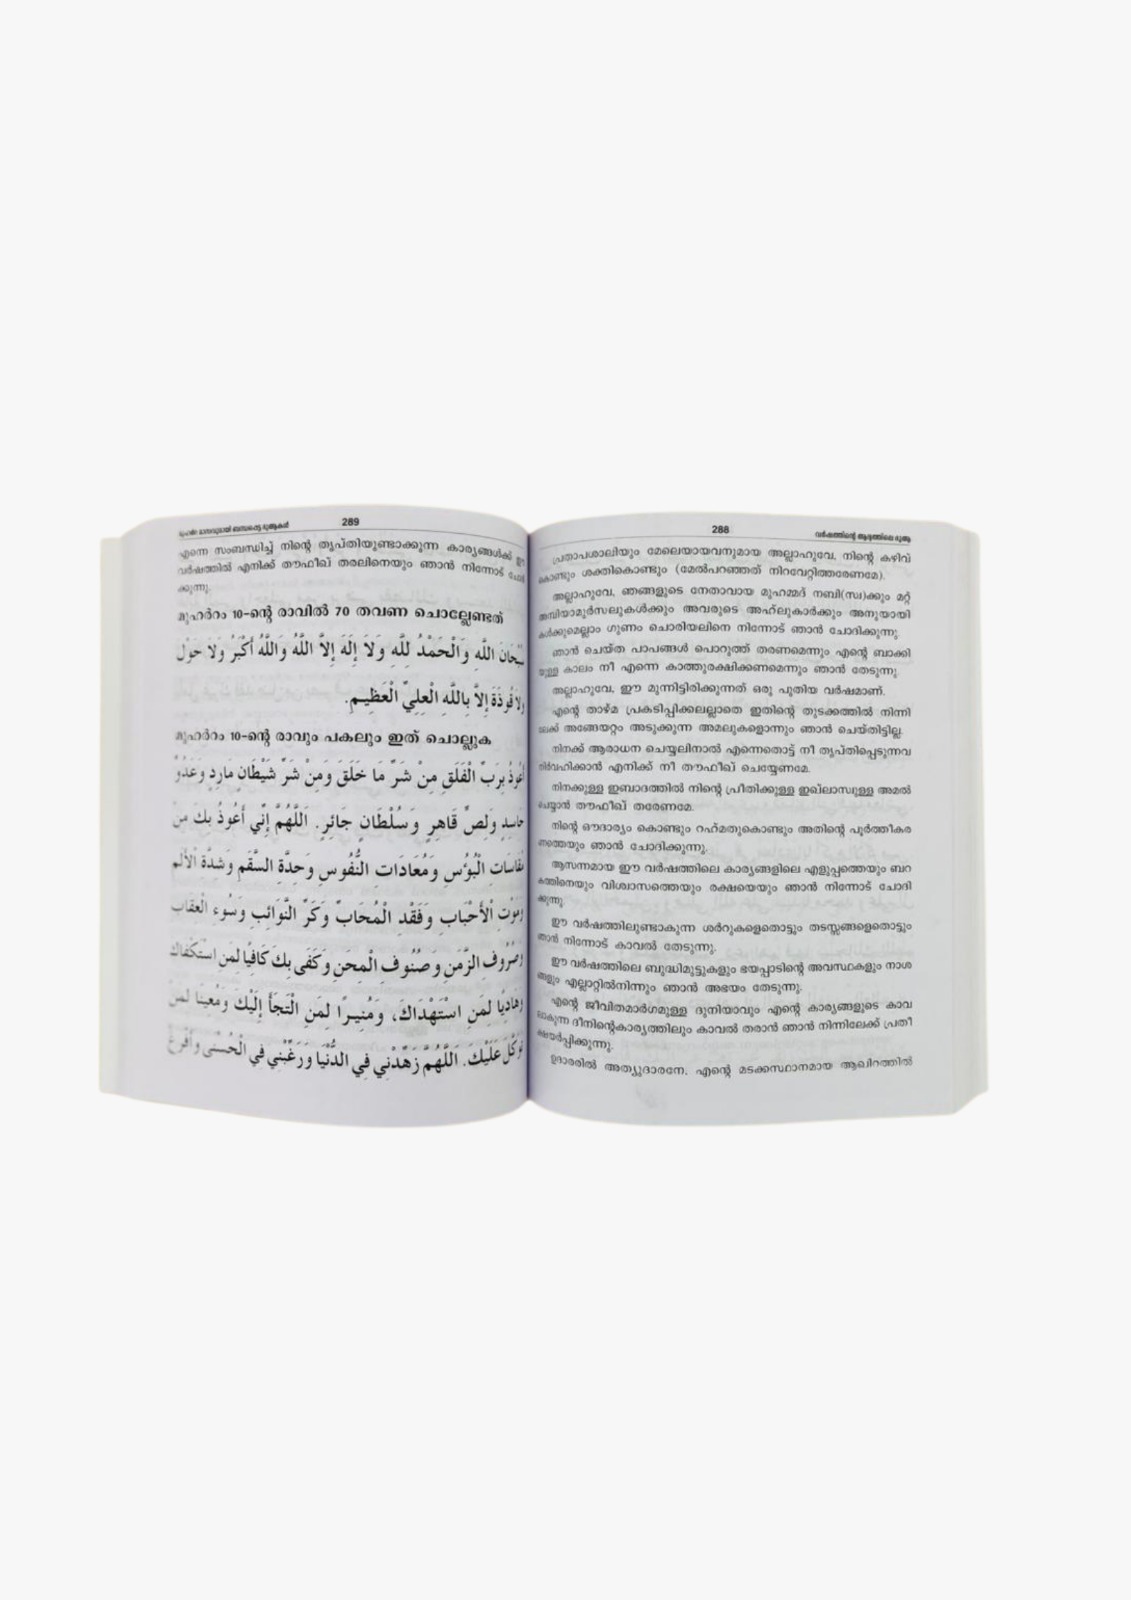 288
വർഷത്തിന്റെ ആദ്യത്തിലെ ദുആ
പ്രതാപശാലിയും മേലെയായവനുമായ അല്ലാഹുവേ, നിന്റെ കഴിവ്
കൊണ്ടും ശക്തികൊണ്ടും (മേൽപറഞ്ഞത് നിറവേറ്റിത്തരേണമേ).
അല്ലാഹുവേ, ഞങ്ങളുടെ നേതാവായ മുഹമ്മദ് നബി(സ്വ)ക്കും മറ്റ്
അമ്പിയാമുർസലുകൾക്കും അവരുടെ അഹ്‌ലുകാർക്കും അനുയായി
കൾക്കുമെല്ലാം ഗുണം ചൊരിയലിനെ നിന്നോട് ഞാൻ ചോദിക്കുന്നു.
ഞാൻ ചെയ്ത പാപങ്ങൾ പൊറുത്ത് തരണമെന്നും എന്റെ ബാക്കി
യുള്ള കാലം നീ എന്നെ കാത്തുരക്ഷിക്കണമെന്നും ഞാൻ തേടുന്നു.
അല്ലാഹുവേ, ഈ മുന്നിട്ടിരിക്കുന്നത് ഒരു പുതിയ വർഷമാണ്.
എന്റെ താഴ്മ പ്രകടിപ്പിക്കലല്ലാതെ ഇതിന്റെ തുടക്കത്തിൽ നിന്നി
ലേക്ക് അങ്ങേയറ്റം അടുക്കുന്ന അമലുകളൊന്നും ഞാൻ ചെയ്തിട്ടില്ല.
നിനക്ക് ആരാധന ചെയ്യലിനാൽ എന്നെതൊട്ട് നീ തൃപ്തിപ്പെടുന്നവ
നിർവഹിക്കാൻ എനിക്ക് നീ തൗഫീഖ് ചെയ്യേണമേ.
നിനക്കുള്ള ഇബാദത്തിൽ നിന്റെ പ്രീതിക്കുള്ള ഇഖ്‌ലാസുള്ള അമൽ
ചെയ്യാൻ തൗഫീഖ് തരേണമേ.
നിന്റെ ഔദാര്യം കൊണ്ടും റഹ്‌മതുകൊണ്ടും അതിന്റെ പൂർത്തീകര
ണത്തെയും ഞാൻ ചോദിക്കുന്നു.
ആസന്നമായ ഈ വർഷത്തിലെ കാര്യങ്ങളിലെ എളുപ്പത്തെയും ബറ
കത്തിനെയും വിശ്വാസത്തെയും രക്ഷയെയും ഞാൻ നിന്നോട് ചോദി
ക്കുന്നു.
ഈ വർഷത്തിലുണ്ടാകുന്ന ശർറുകളെതൊട്ടും തടസ്സങ്ങളെതൊട്ടും
ഞാൻ നിന്നോട് കാവൽ തേടുന്നു.
ഈ വർഷത്തിലെ ബുദ്ധിമുട്ടുകളും ഭയപ്പാടിന്റെ അവസ്ഥകളും നാശ
ങ്ങളും എല്ലാറ്റിൽനിന്നും ഞാൻ അഭയം തേടുന്നു.
എന്റെ ജീവിതമാർഗമുള്ള ദുനിയാവും എന്റെ കാര്യങ്ങളുടെ കാവ
ലാകുന്ന ദീനിന്റെകാര്യത്തിലും കാവൽ തരാൻ ഞാൻ നിന്നിലേക്ക് പ്രതീ
ക്ഷയർപ്പിക്കുന്നു.
ഉദാരരിൽ അത്യുദാരനേ, എന്റെ മടക്കസ്ഥാനമായ ആഖിറത്തിൽ
മുഹർറം മാസവുമായി ബന്ധപ്പെട്ട ദുആകൾ
289
എന്നെ സംബന്ധിച്ച് നിന്റെ തൃപ്തിയുണ്ടാക്കുന്ന കാര്യങ്ങൾക്ക് ഈ
വർഷത്തിൽ എനിക്ക് തൗഫീഖ് തരലിനെയും ഞാൻ നിന്നോട് ചോദി
ക്കുന്നു.
മുഹർറം 10-ന്റെ രാവിൽ 70 തവണ ചൊല്ലേണ്ടത്
سُبْحَانَ اللَّهِ وَالْحَمْدُ لِلَّهِ وَلاَ إِلَهَ إِلاَّ اللَّهُ وَاللَّهُ أَكْبَرُ وَلاَ حَوْلَ
وَلاَ قُوَّةَ إِلاَّ بِاللَّهِ الْعَلِيِّ الْعَظِيمِ.
മുഹർറം 10-ന്റെ രാവും പകലും ഇത് ചൊല്ലുക
أَعُوذُ بِرَبِّ الْفَلَقِ مِنْ شَرِّ مَا خَلَقَ وَمِنْ شَرِّ شَيْطَانٍ مَارِدٍ وَعَدُوٍّ
حَاسِدٍ وَلِصٍّ قَاهِرٍ وَسُلْطَانٍ جَائِرٍ. اَللَّهُمَّ إِنِّي أَعُوذُ بِكَ مِنْ
الْبُؤْسِ وَمُعَادَاتِ النُّفُوسِ وَحِدَّةِ السَّقَمِ وَشِدَّةِ الْأَلَمِ
وَمَوْتِ الْأَحْبَابِ وَفَقْدِ الْمُحَابِّ وَكَرِّ النَّوَائِبِ وَسُوءِ الْعِقَابِ
وَصُرُوفِ الزَّمَنِ وَصُنُوفِ الْمِحَنِ وَكَفَى بِكَ كَافِيًا لِمَنِ اسْتَكْفَاكَ
وَهَادِيًا لِمَنِ اسْتَهْدَاكَ، وَمُنِيرًا لِمَنِ الْتَجَأَ إِلَيْكَ وَمُعِينًا لِمَنْ
تَوَكَّلَ عَلَيْكَ. اَللَّهُمَّ زَهِّدْنِي فِي الدُّنْيَا وَرَغِّبْنِي فِي الْحُسْنَى وَأَفْرِغْ